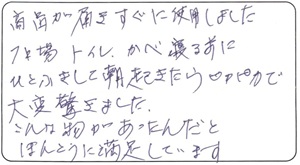 商品が届きすぐに使用しました
フロ場、トイレ、かべ寝る前に
ひとふきして朝起きたらピカピカで
大変驚きました。
こんな物があったんだと
ほんとうに満足しています